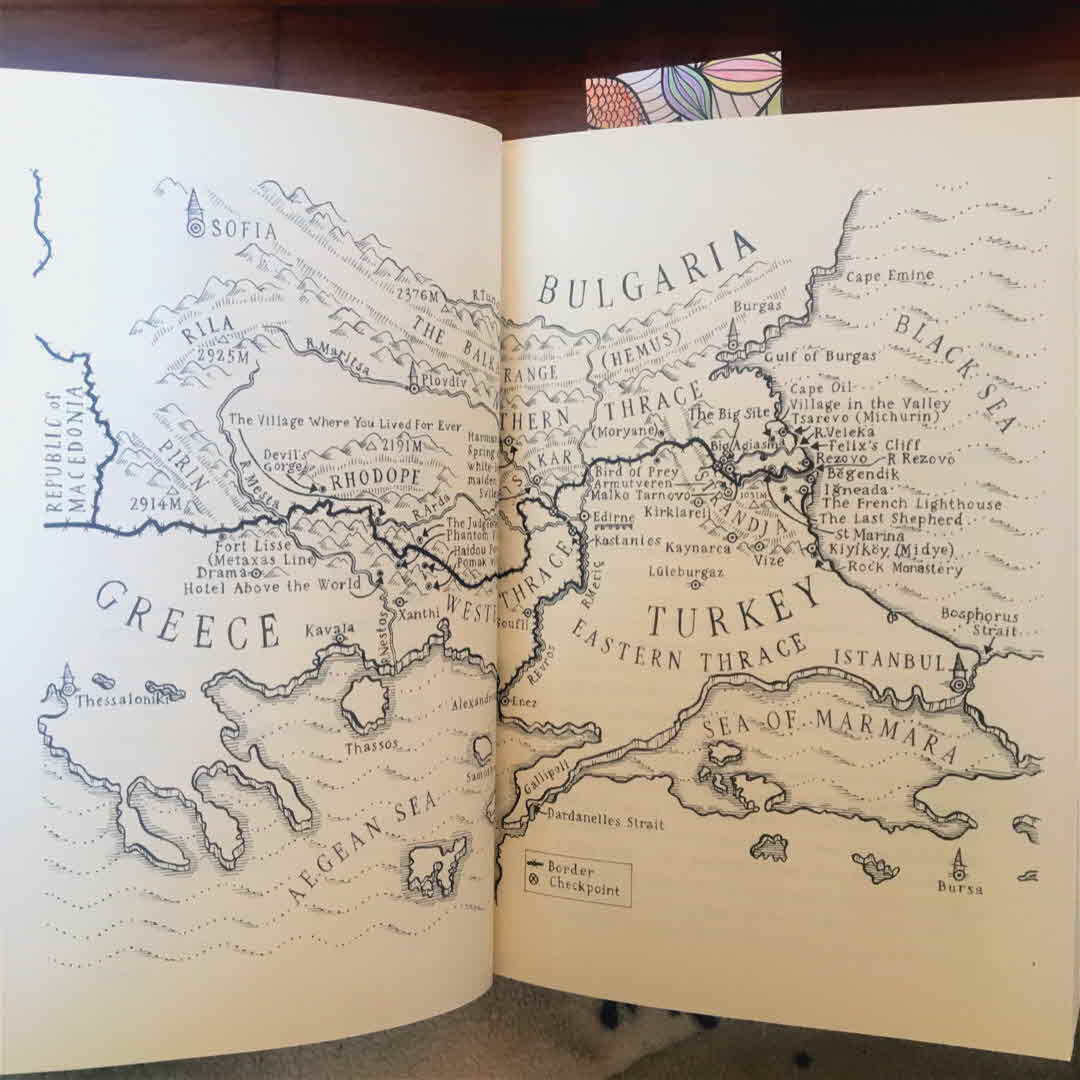 SOFIA
2376M
R.Tun
THE BAL
RILA
2925M
R.Maritsa
Plovdiv
The Village Where You Lived For Ever
2191M
Devil's
Gorge
RHODOPE
REPUBLIC of
MACEDONIA
PIRIN
2914M
R.Mesta
R.Arda
The Judge
Phantom
Haidou
Pomak
Fort Lisse
(Metaxas Line)
Drama
Hotel Above the World
GREECE
Xanthi
WEST
Kavala
R.Nestos
Thessaloniki
Thassos
Alexand
AEGEAN SEA
BULGARIA
RANGE
(HEMUS)
Burgas
Cape Emine
BLACK SEA
Gulf of Burgas
THERN THRACE
(Moryane)
The Big Site
Cape Oil
Village in the Valley
Tsarevo (Michurin)
R.Veleka
Big Agiasma
Felix's Cliff
Rezovo
R Rezovo
Begendik
Igneada
The French Lighthouse
The Last Shepherd
St Marina
Kiyiköy (Midye)
Rock Monastery
SAKAR
Bird of Prey
Armutveren
Malko Tarnovo
1031M
STRANDJA
Edirne
Kirklareli
Kastanies
Kaynarca
Vize
Lüleburgaz
THRACE
R.Meriç
R.Evros
TURKEY
EASTERN THRACE
Bosphorus
Strait
ISTANBUL
Enez
SEA OF MARMARA
Gallipoli
Dardanelles Strait
Border
Checkpoint
Bursa